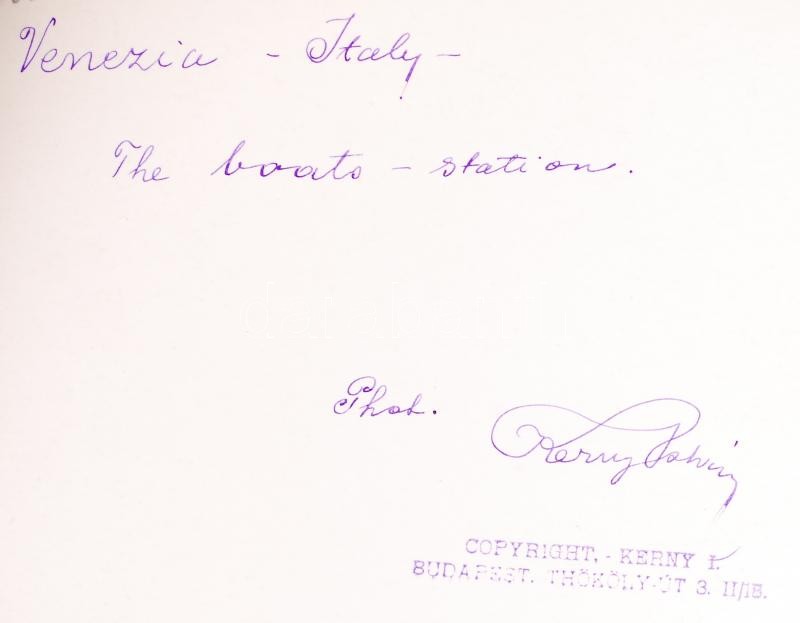 Venezia - Italy -
The boats - station.
Phot. Kerny István
COPYRIGHT, - KERNY I.
BUDAPEST. THÖKÖLY-ÚT 3. II/18.